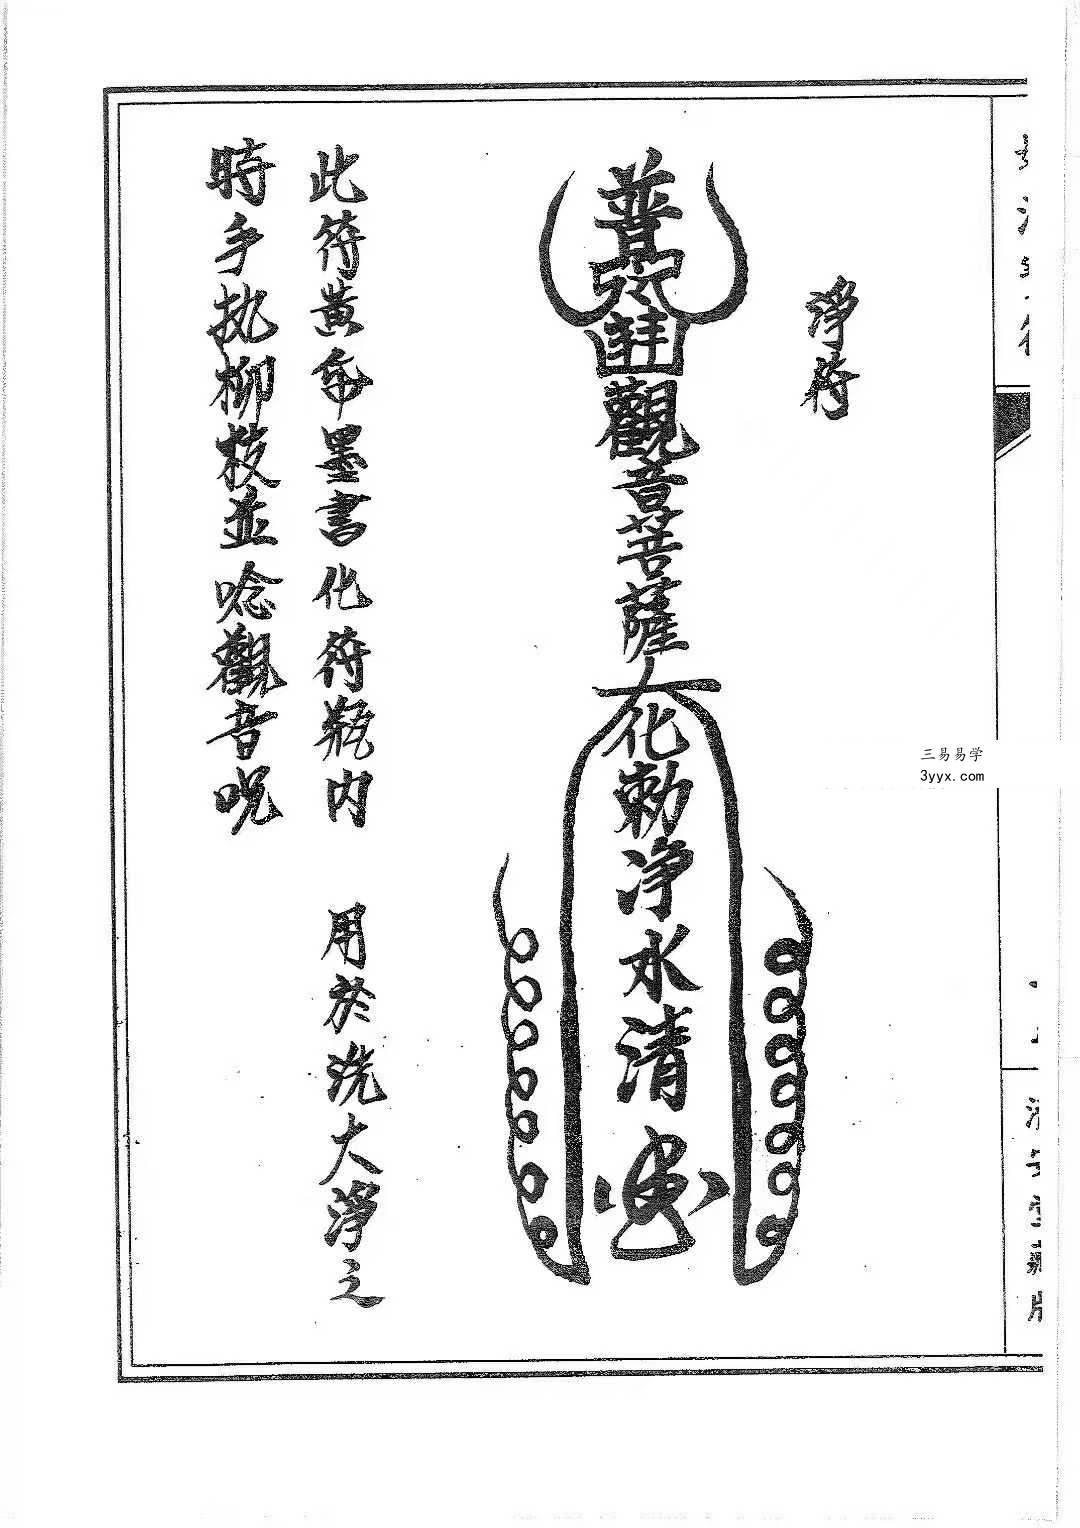 淨符
普
觀音菩薩
化勅淨水清
此符黃帋墨書化符瓶內 用於洗大淨之
時手执柳枝並唸觀音咒
三易易学
3yyx.com